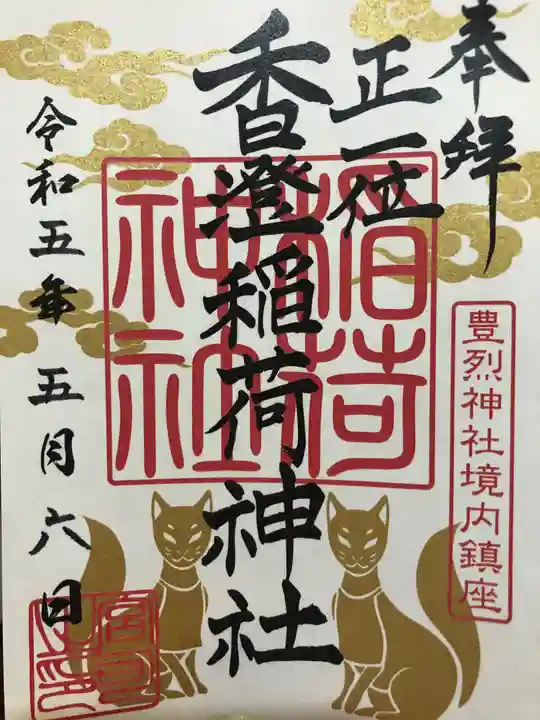 奉拝
豊烈神社境内鎮座
正一位
香澄稲荷神社
稲荷神社
令和五年 五月六日